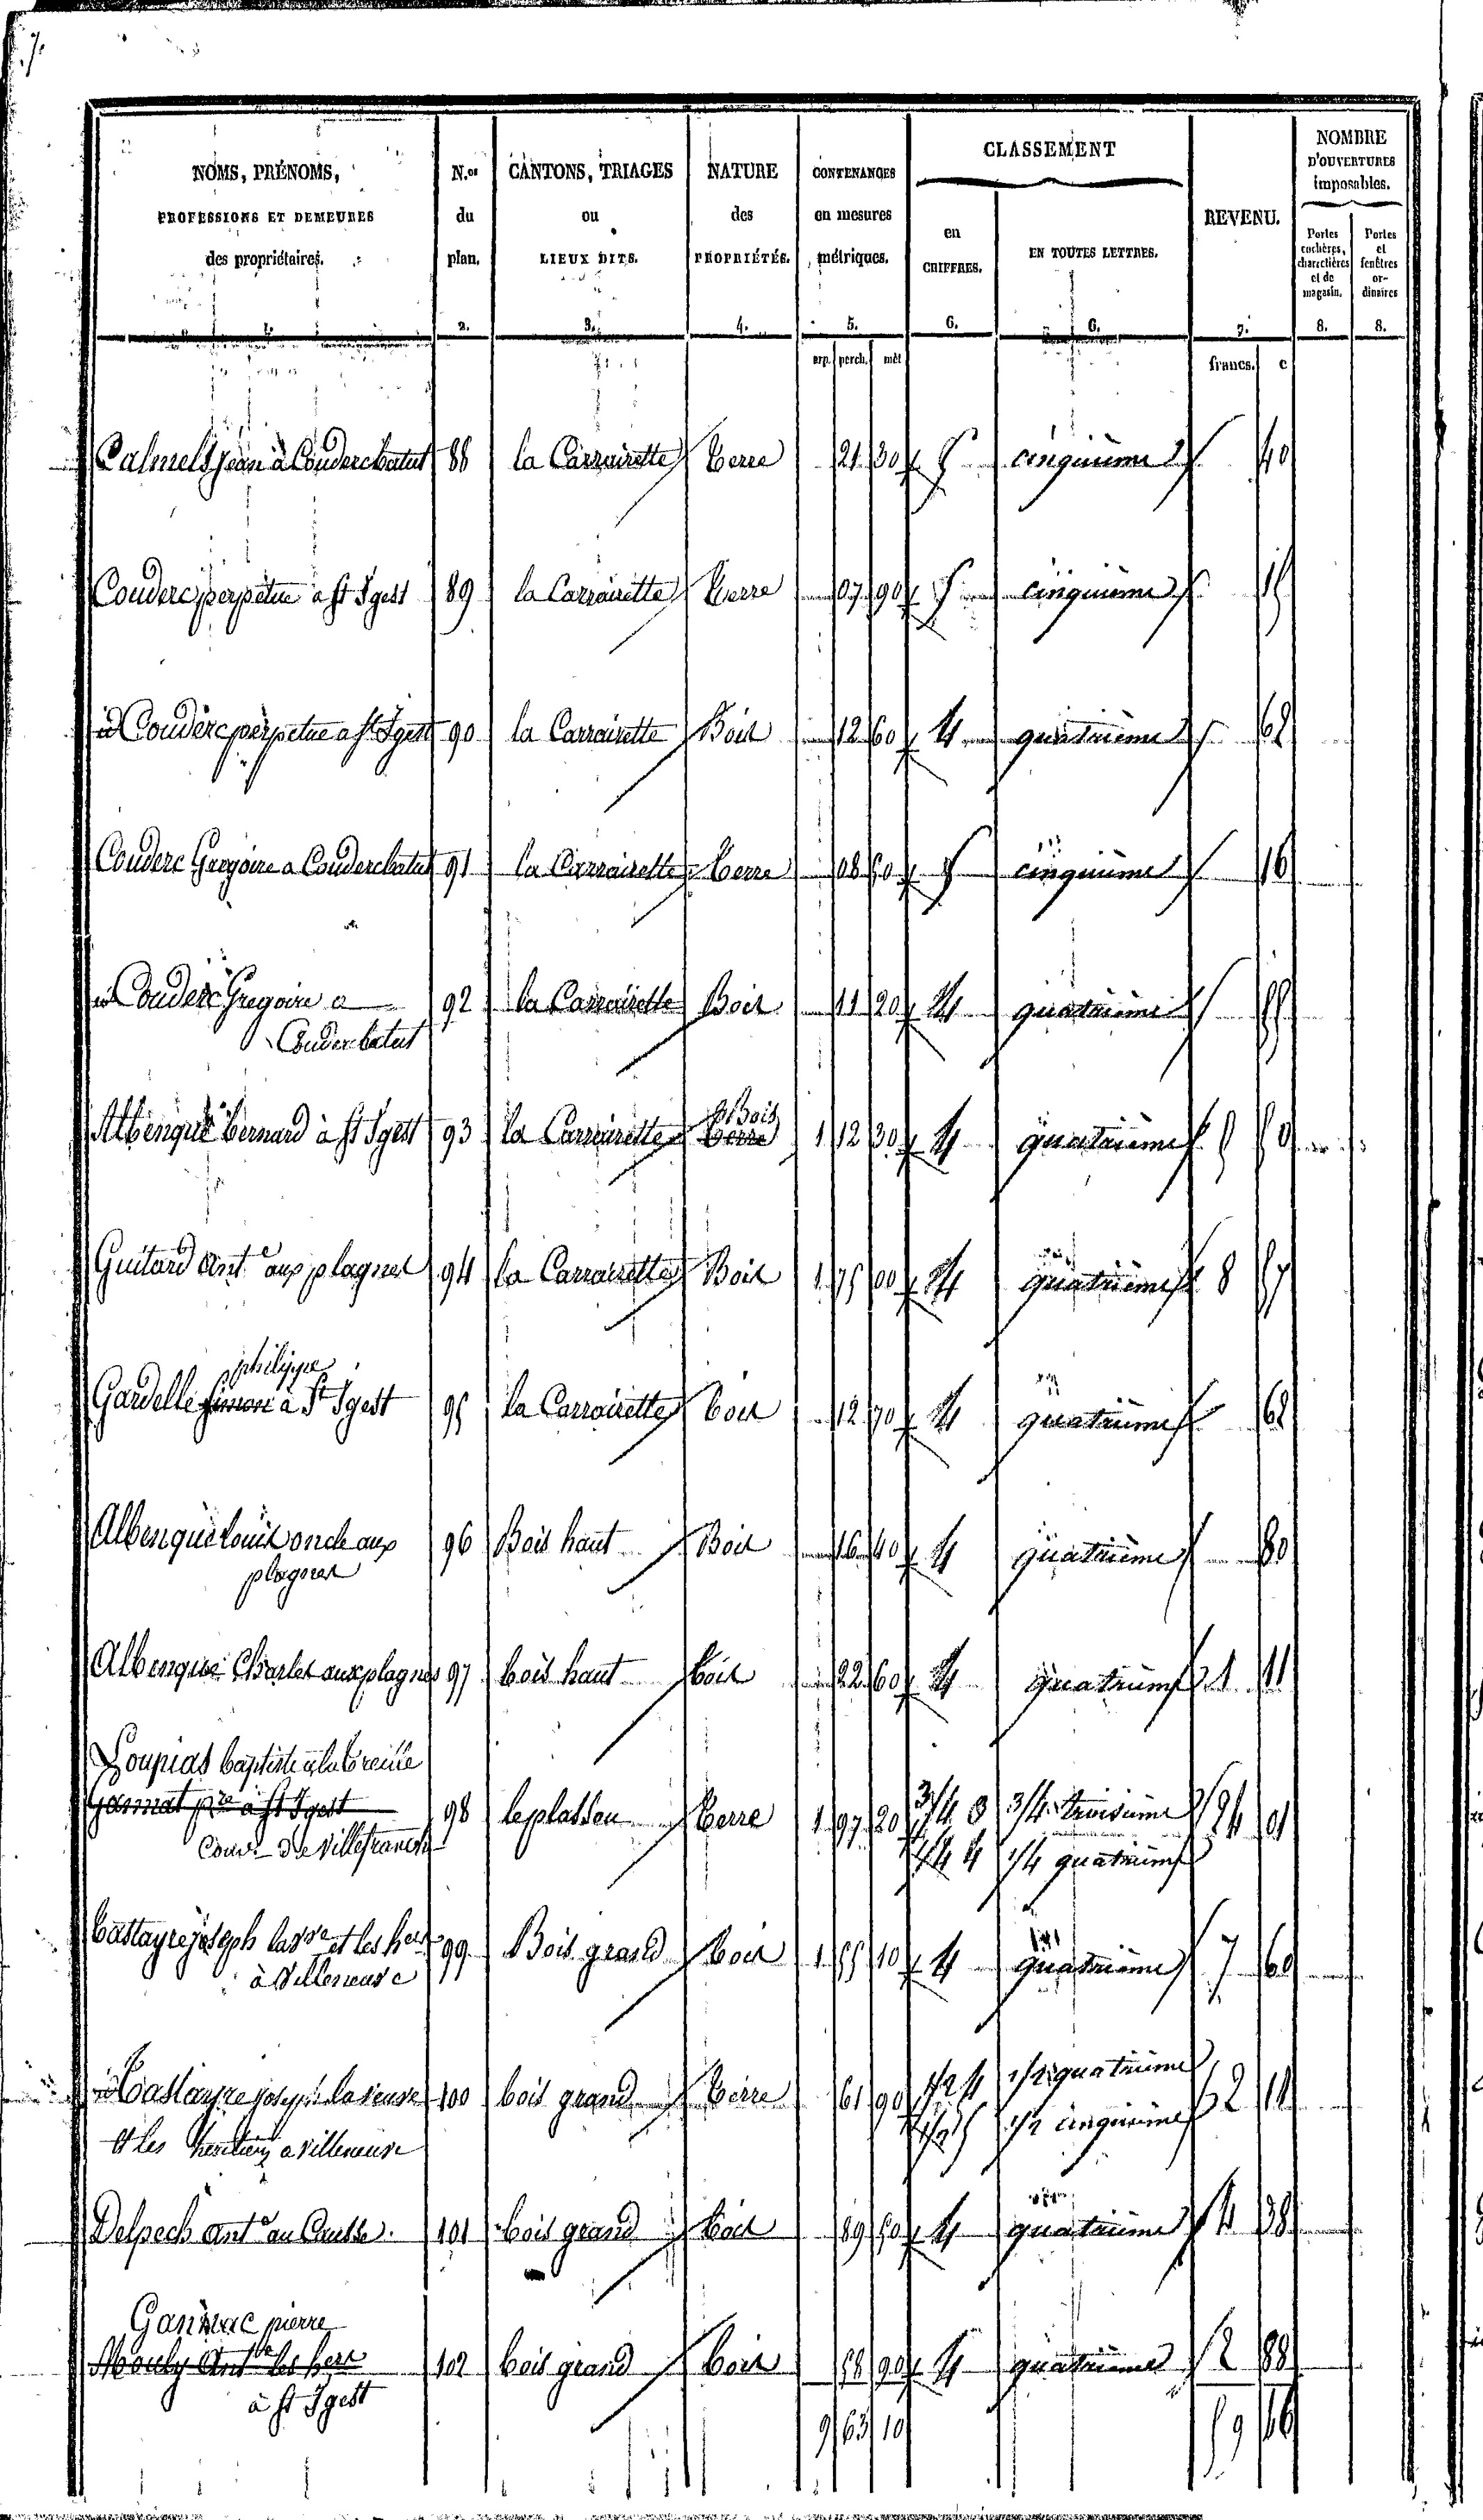 7.
NOMS, PRÉNOMS, PROFESSIONS ET DEMEURES des propriétaires. N.os du plan. CANTONS, TRIAGES ou LIEUX DITS. NATURE des PROPRIÉTÉS. CONTENANCES en mesures métriques. CLASSEMENT en CHIFFRES. EN TOUTES LETTRES. REVENU. NOMBRE D'OUVERTURES imposables. Portes cochères, charretières et de magasin. Portes et fenêtres ordinaires
1. 2. 3. 4. 5. 6. 6. 7. 8. 8.
arp. perch. mèt. francs. c
Calmels jean à Couderc batut 88 la Carrairette terre 21 30 5 cinquième 40
Couderc perpetue a st Igest 89 la Carrairette terre 07 90 5 cinquième 15
id Couderc perpetue a st Igest 90 la Carrairette Bois 12 60 4 quatrième 62
Couderc Gregoire a Couderc batut 91 la Carrairette terre 08 50 5 cinquième 16
id Couderc Gregoire a 92 la Carrairette Bois 11 20 4 quatrième 55
Couderc batut
Bois
Albenque bernard à st Igest 93 la Carrairette terre 1 12 30 4 quatrième 5 50
Guitard Ant.e aux plagnes 94 la Carrairette Bois 1 75 00 4 quatrième 8 57
philippe
Gardelle simon à St Igest 95 la Carrairette bois 12 70 4 quatrième 62
Albenque louis aux 96 Bois haut Bois 16 40 4 quatrième 80
plagnes
Albenque Charles aux plagnes 97 bois haut bois 22 60 4 quatrième 1 11
Loupias baptiste à la
Garrnat p.re à st Igest 98 le plassou terre 1 97 20 3/4 3 3/4 troisième 24 01
1/4 4 1/4 quatrième
de Villefranche
Castayre joseph la et les her 99 Bois grand bois 1 55 10 4 quatrième 7 60
à Villeneuve
id Castayre joseph la veuve 100 bois grand terre 61 90 1/2 4 1/2 quatrième 2 11
et les heritiers a villeneuve 1/2 5 1/2 cinquième
Delpech Ant.e au Causse. 101 bois grand bois 89 50 4 quatrième 4 38
pierre
Mouly Ant.e les hers 102 bois grand bois 58 90 4 quatrième 2 88
à st Igest
9 63 10 59 46